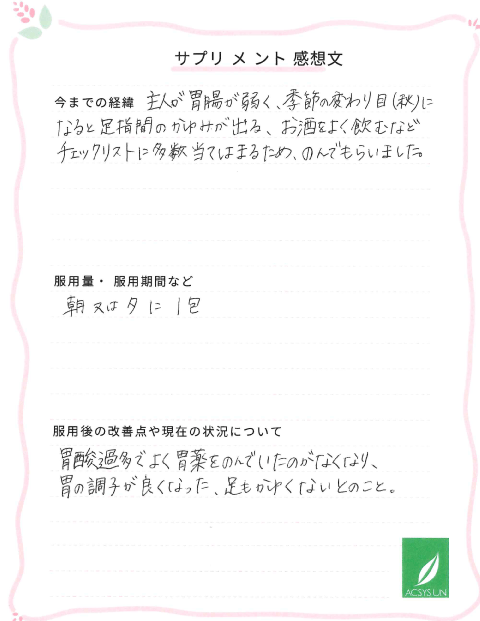 サプリメント 感想文
今までの経緯 主人が胃腸が弱く、季節の変わり目(秋)に
なると足指間のかゆみが出る、お酒をよく飲むなど
チェックリストに多数当てはまるため、のんでもらいました。
服用量・服用期間など
朝又は夕に1包
服用後の改善点や現在の状況について
胃酸過多でよく胃薬をのんでいたのがなくなり、
胃の調子が良くなった、足もかゆくないとのこと。
ACSYSUN